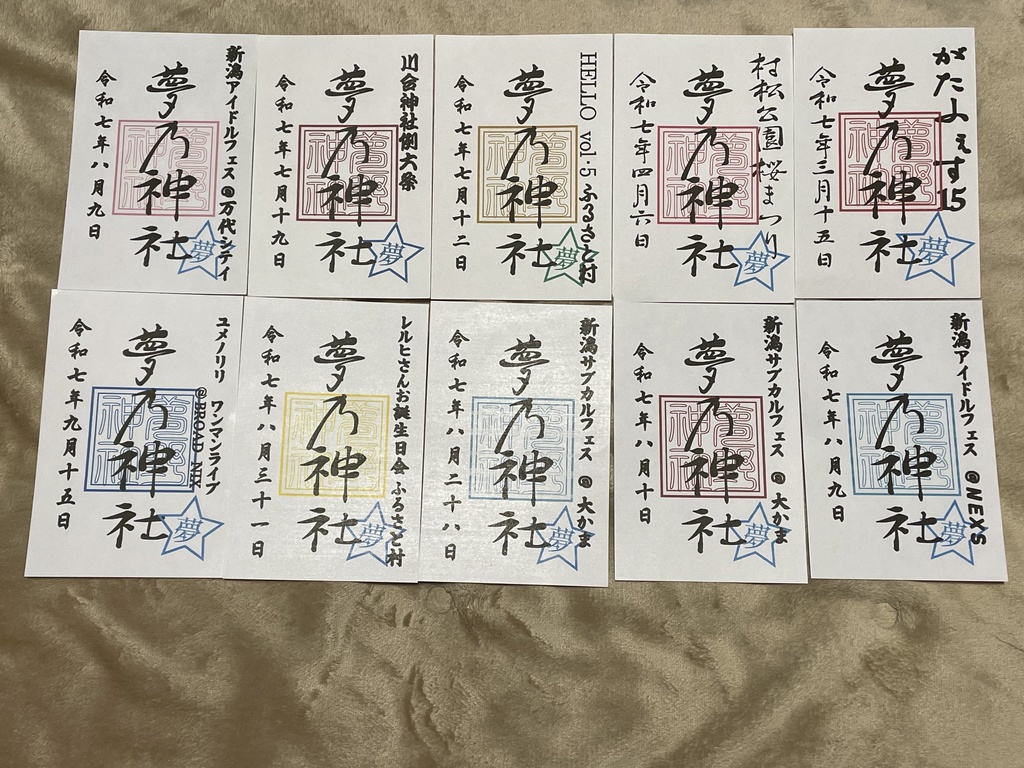 がたふぇす15
夢乃神社
夢
令和七年三月十五日
村松公園桜まつり
夢乃神社
夢
令和七年四月六日
HELLO vol.5 ふるさと村
夢乃神社
夢
令和七年七月十二日
川合神社例大祭
夢乃神社
夢
令和七年七月十九日
新潟アイドルフェス@万代シテイ
夢乃神社
夢
令和七年八月九日
新潟アイドルフェス @NEXS
夢乃神社
夢
令和七年八月九日
新潟サブカルフェス @大かま
夢乃神社
夢
令和七年八月十日
新潟サブカルフェス @大かま
夢乃神社
夢
令和七年八月二十八日
レルヒさんお誕生日会 ふるさと村
夢乃神社
夢
令和七年八月三十一日
ユメノリリ ワンマンライブ
@BROAD
夢乃神社
夢
令和七年九月十五日